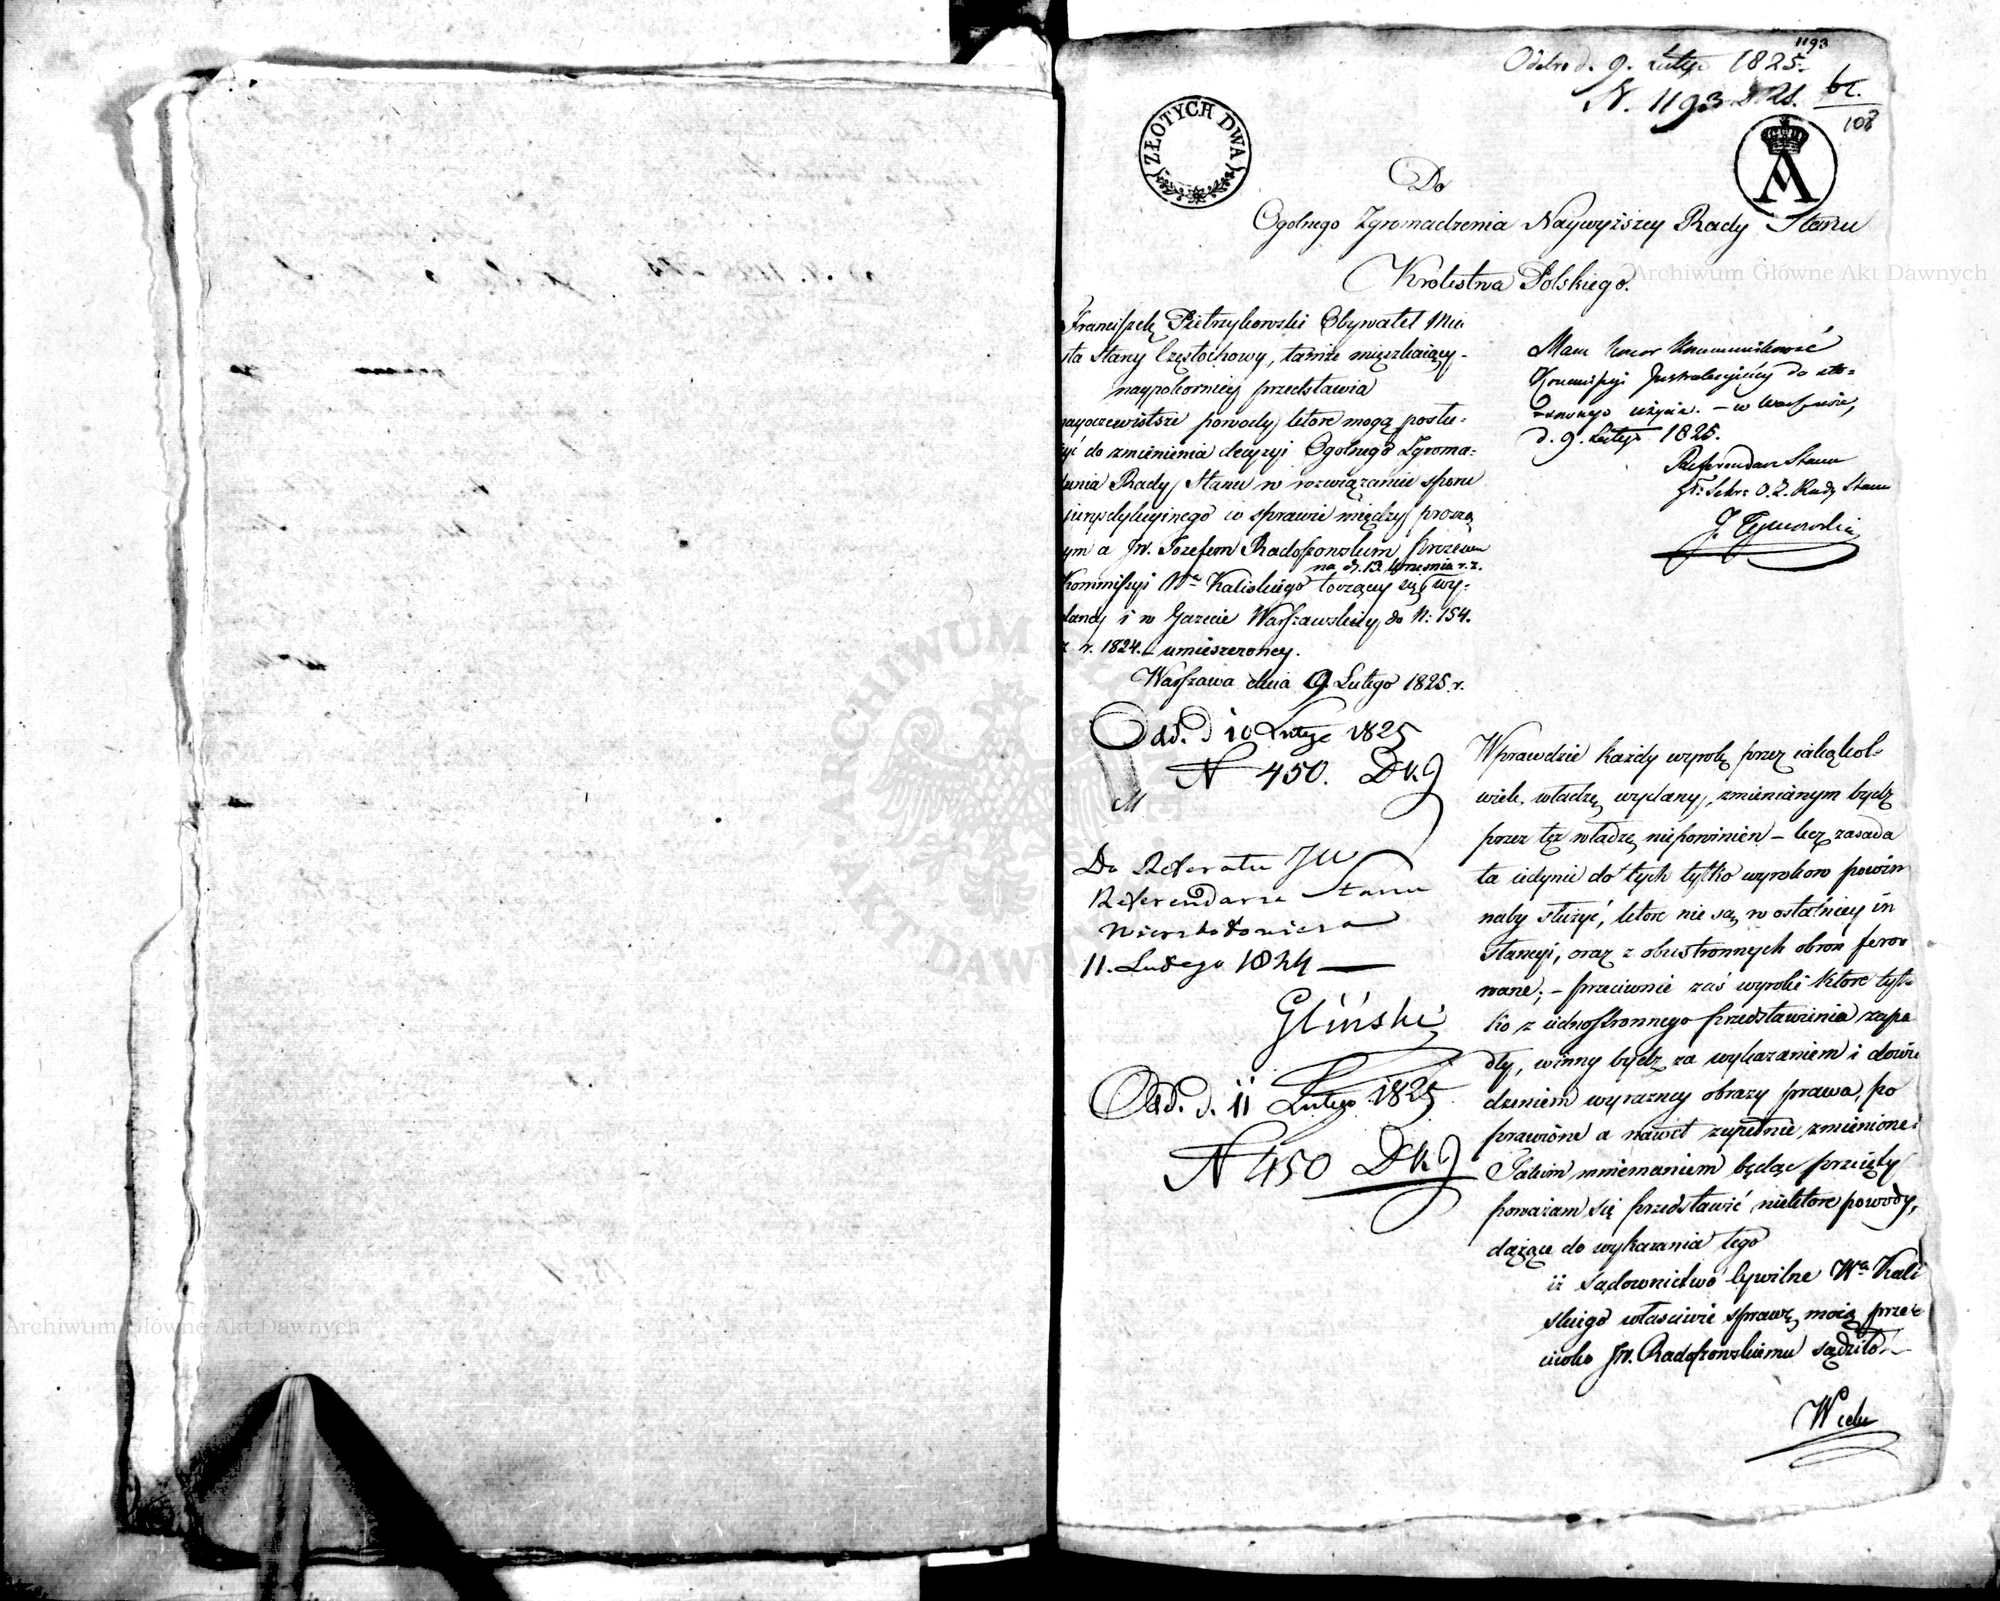 1193
Odebr. d. 9. Lutego 1825.
N. 1193
108
ZŁOTYCH DWA
Do
Ogolnego Zgromadzenia Naywyższey Rady Stanu
Krolestwa Polskiego.
Franciszek Pietrzykowski Obywatel Mia
sta Stary Częstochowy, tamże mieszkaiący
naypokorniey przedstawia
nayoczewistsze powody, ktore mogą posłu-
żyć do zmienienia decyzyi Ogolnego Zgroma-
dzenia Rady Stanu w rozwiązanie sporu
jurysdykcyinego w sprawie między proszą
cym a JW. Jozefem Radoszowskim, przez
na d. 13. Września r. z.
Kommissyi Wa Kaliskiego toczący się wy-
daney i w Gazecie Warszawskiey do N: 154.
z r. 1824. umieszczoney.
Warszawa dnia 9. Lutego 1825 r.
Mam honor kommunikować
Kommissyi Instrukcyiney do sto-
sownego użycia. – w Warszawie,
d. 9. Lutego 1825.
Referendarz Stanu
Sekr: O. Z. Rady Stanu
Odd. d 10 Lutego 1825
N 450. DKJ
Do Referatu JW
Referendarza Stanu
11. Lutego 1824
Gliński
Odd. d. 11 Lutego 1825
N 450 DKJ
Wprawdzie każdy wyrok przez iakąkol-
wiek władzę wydany, zmienianym bydź
przez tęż władzę niepowinien – lecz zasada
ta iedynie do tych tylko wyrokow powin
naby służyć, ktore nie są w ostatniey in
stancyi, oraz z obustronnych obron ferow
wane; – przeciwnie zaś wyroki ktore tyl-
ko z iednostronnego przedstawienia zapa
dły, winny bydź za wykazaniem i dowie
dzeniem wyrazney obrazy prawa, po
prawione a nawet zupełnie zmienione.
Takim mniemaniem będąc przeięty
poważam się przedstawić niektore powody,
dążące do wykazania tego
iż sądownictwo Cywilne Wa Kali
skiego właściwie sprawę moią prze-
ciwko JW. Radoszowskiemu sądziło
Wielu
Archiwum Główne Akt Dawnych
Archiwum Główne Akt Dawnych